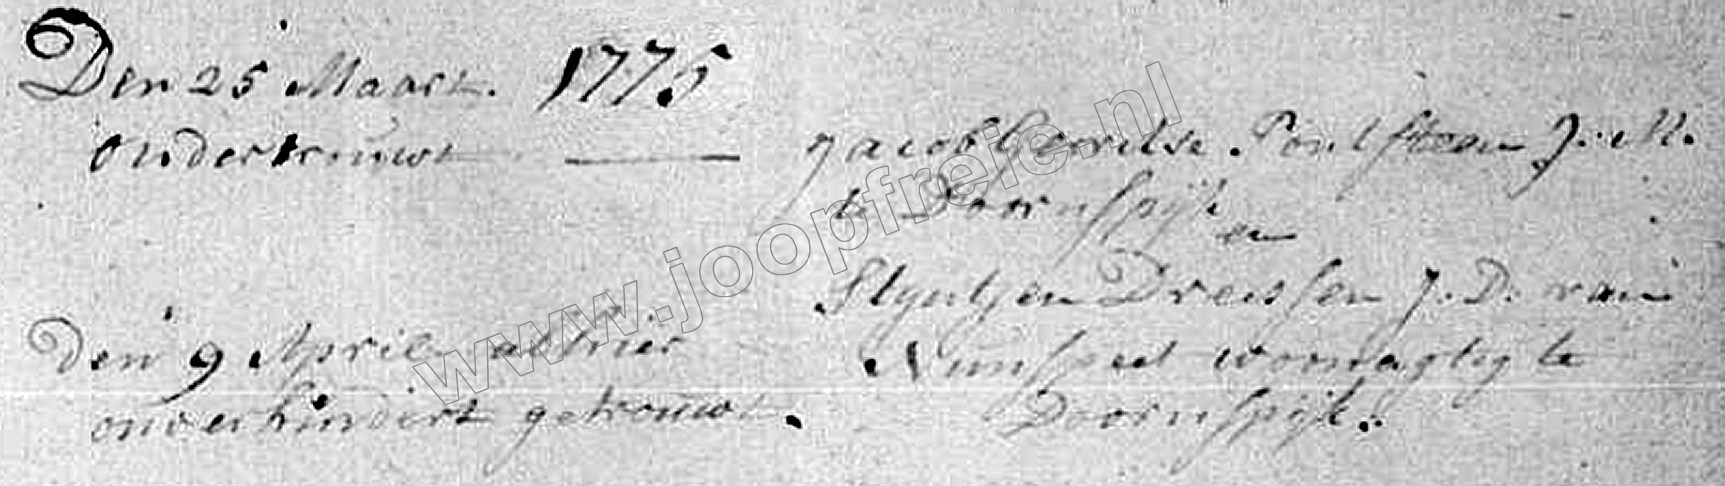 Den 25 Maart. 1775
ondertrouwt
Jacob Gerritse. J. M.
te Doornspijk
en
Styntjen Dreissen J. D. van
Nunspeet woonagtig te
Doornspijk.
den 9 April alhier
onverhindert getrouwt.
www.joopfreie.nl